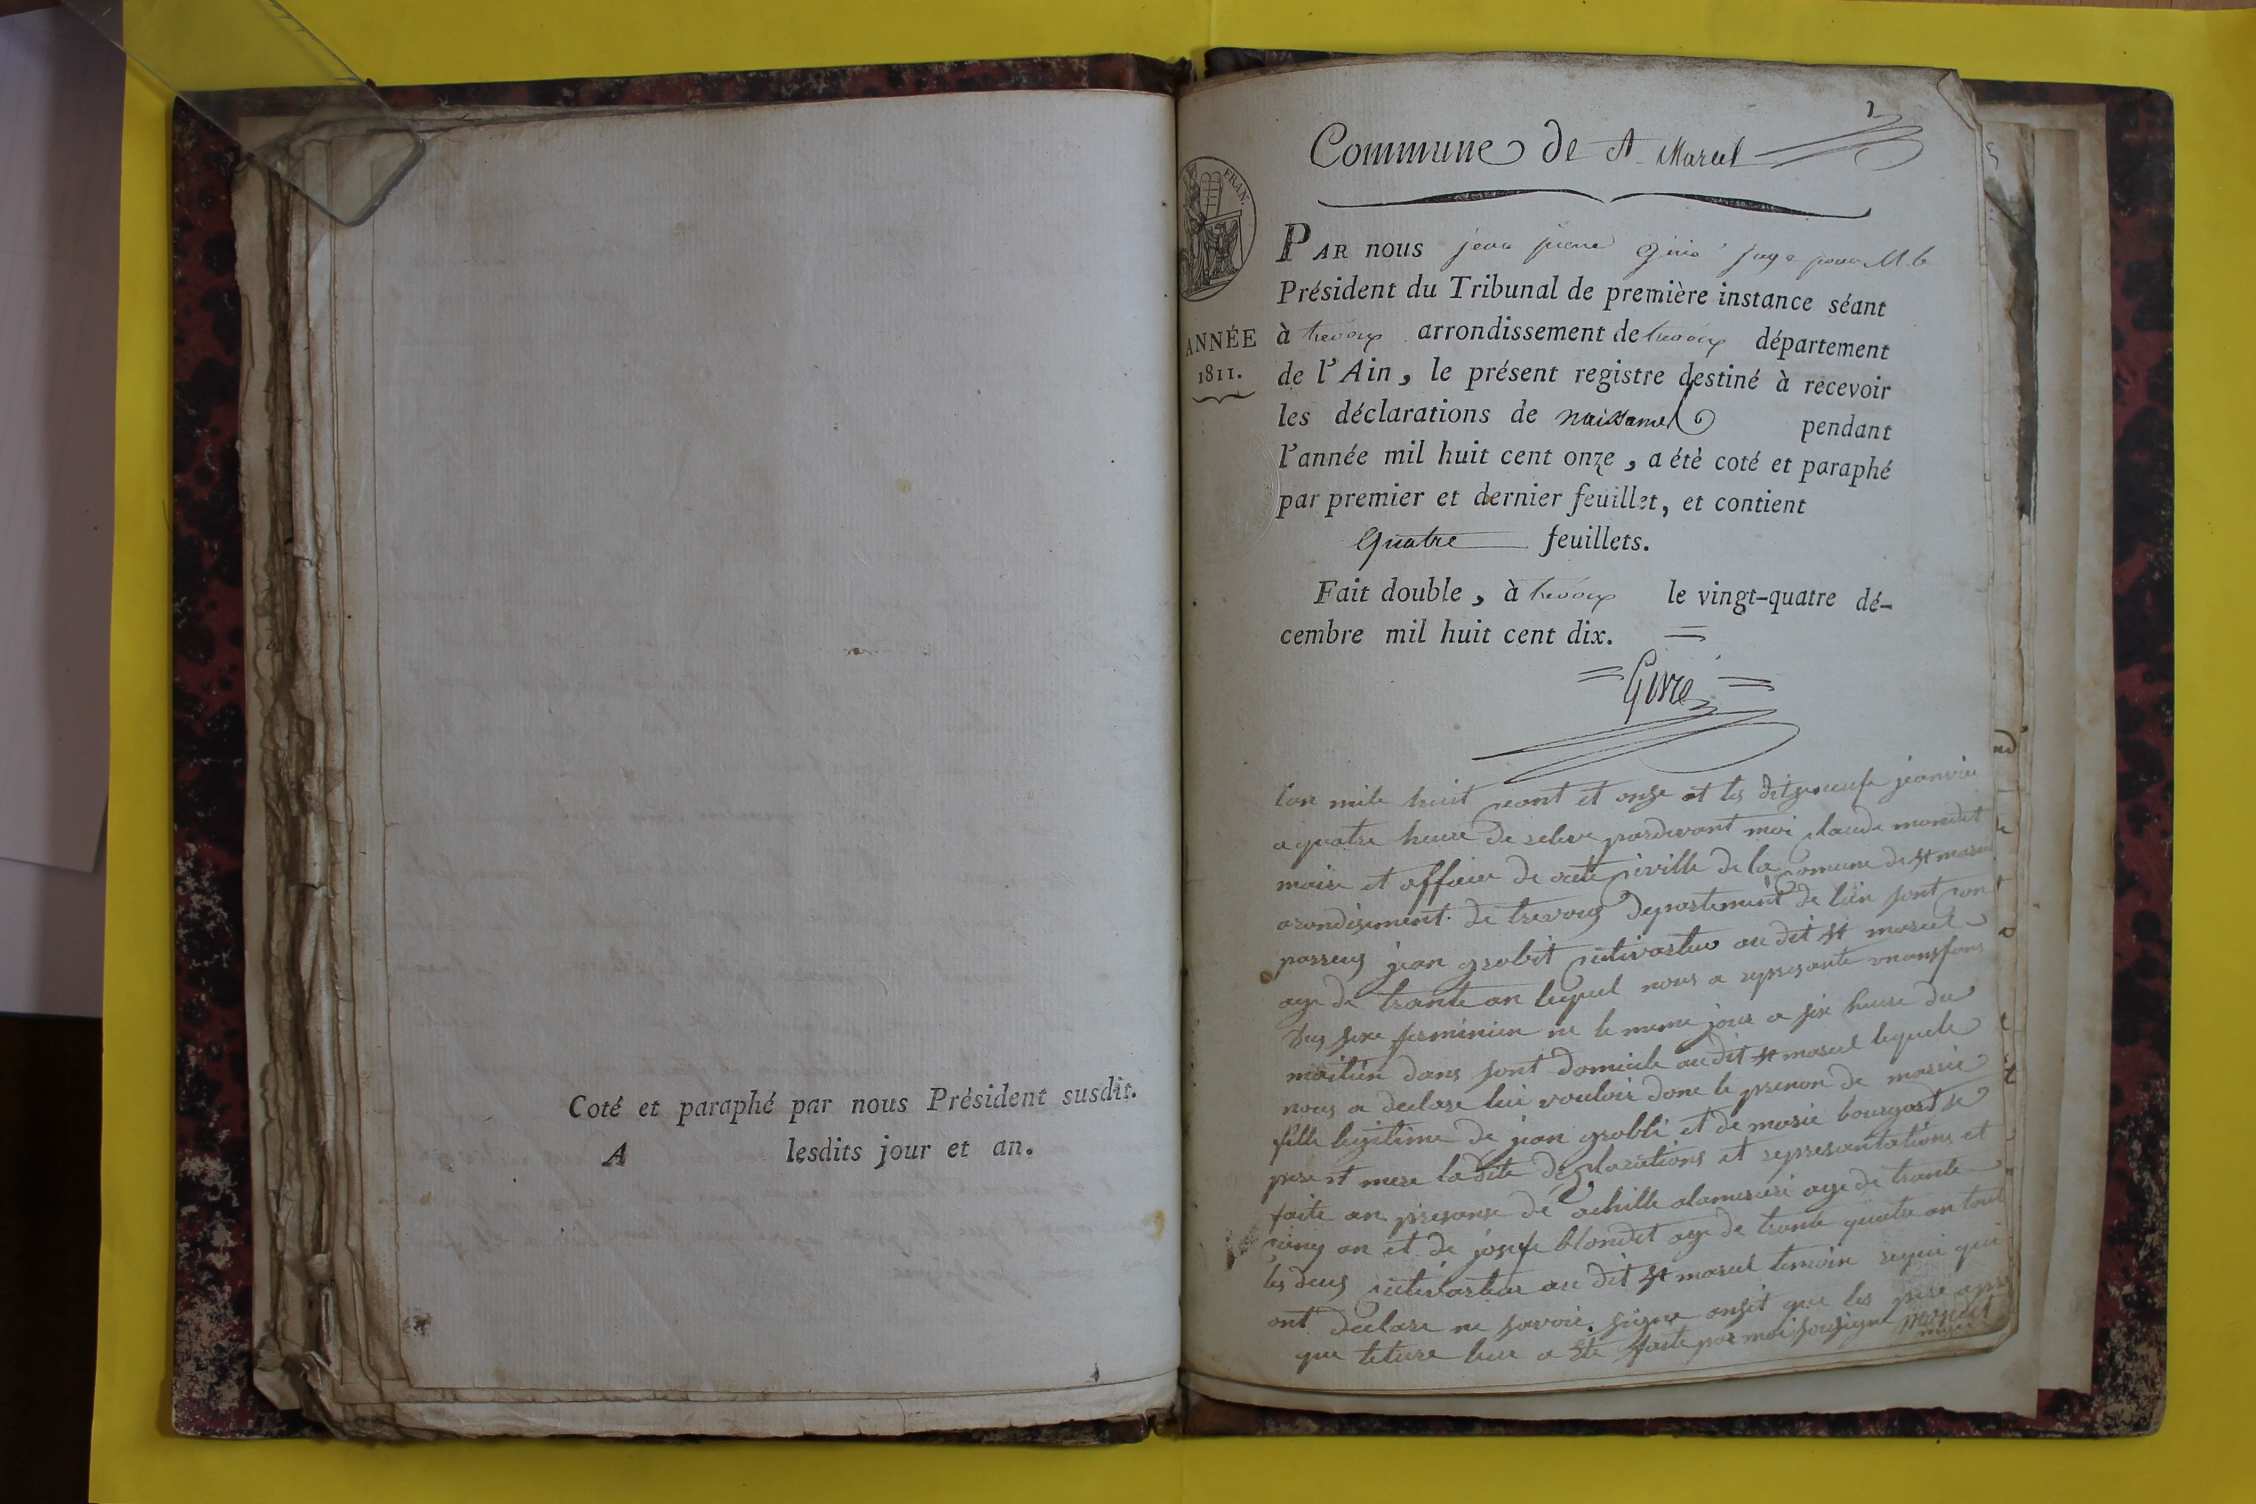 Coté et paraphé par nous Président susdit.
A lesdits jour et an.
Commune de St Marcel
FRAN.
ANNÉE
1811.
PAR nous jean pierre Givré juge pour M. le
Président du Tribunal de première instance séant
à trevoux arrondissement de trevoux département
de l'Ain, le présent registre destiné à recevoir
les déclarations de naissance pendant
l'année mil huit cent onze, a été coté et paraphé
par premier et dernier feuillet, et contient
Quatre feuillets.
Fait double, à trevoux le vingt-quatre dé-
cembre mil huit cent dix.
Givré
l'an mile huit cent et onze et les dits neufe jeanvie
a quatre heure de releve pardevant moi claude
maire et officier de cette civille de la Comune de st marcel
arondisement de trevoux departement de lain sont con
parreus jean grobit cultivarteur au dit st marcel
age de trante an lequel nous a represante
du sexe ferminien ne le meme jour a six heure du
maitien dans sont domicile au dit st marcel lequele
nous a declare lui vouloir done le prenon de marrie
fille legitime de jean grobli et de marie
pere et mere la dite declarations et represantations et
faite an presanse de achille age de trante
cinq an et de josefe blondet age de trante quatre an tout
les deus cultivarteur au dit st marcel temoin requi qui
ont declare ne savoir signe ansit que les pere apre
que leture lieu a ete faite par moi sousigne
maire